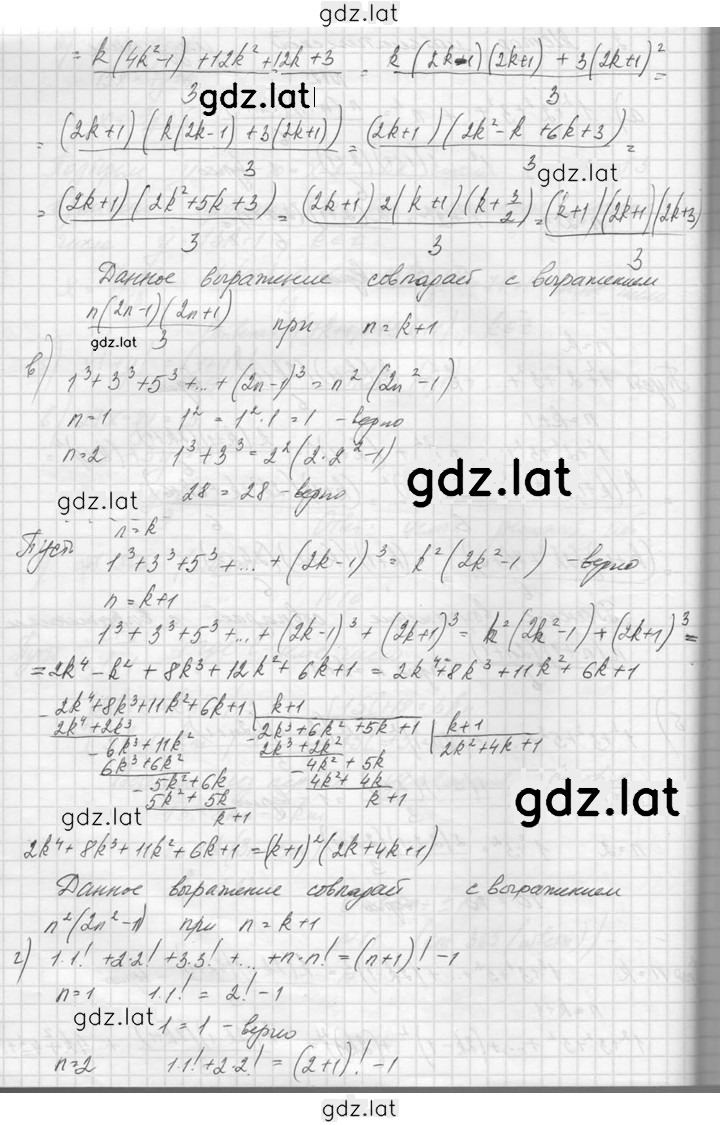 gdz.lat
= k(4k²-1) + 12k² + 12k + 3 / 3 = k(2k-1)(2k+1) + 3(2k+1)² / 3 =
gdz.lat
= (2k+1)(k(2k-1) + 3(2k+1)) / 3 = (2k+1)(2k²-k+6k+3) / 3 =
gdz.lat
= (2k+1)(2k²+5k+3) / 3 = (2k+1) 2(k+1)(k+3/2) / 3 = (k+1)(2k+1)(2k+3) / 3
Данное выражение совпадает с выражением
n(2n-1)(2n+1) / 3 при n=k+1
gdz.lat
в) 1³+3³+5³+...+(2n-1)³=n²(2n²-1)
n=1 1²=1²·1=1 - верно
n=2 1³+3³=2²(2·2²-1)
gdz.lat
gdz.lat
28=28 - верно
Пусть n=k
1³+3³+5³+...+(2k-1)³=k²(2k²-1) - верно
n=k+1
1³+3³+5³+...+(2k-1)³+(2k+1)³=k²(2k²-1)+(2k+1)³=
=2k⁴-k²+8k³+12k²+6k+1=2k⁴+8k³+11k²+6k+1
- 2k⁴+8k³+11k²+6k+1 | k+1
2k⁴+2k³ | - 2k³+6k²+5k+1 | k+1
- 6k³+11k² 2k³+2k² | 2k²+4k+1
6k³+6k² - 4k²+5k
- 5k²+6k 4k²+4k
5k²+5k k+1
k+1
gdz.lat
gdz.lat
2k⁴+8k³+11k²+6k+1=(k+1)²(2k+4k+1)
Данное выражение совпадает с выражением
n²(2n²-1) при n=k+1
г) 1·1!+2·2!+3·3!+...+n·n!=(n+1)!-1
n=1 1·1!=2!-1
gdz.lat
1=1 - верно
n=2 1·1!+2·2!=(2+1)!-1
gdz.lat